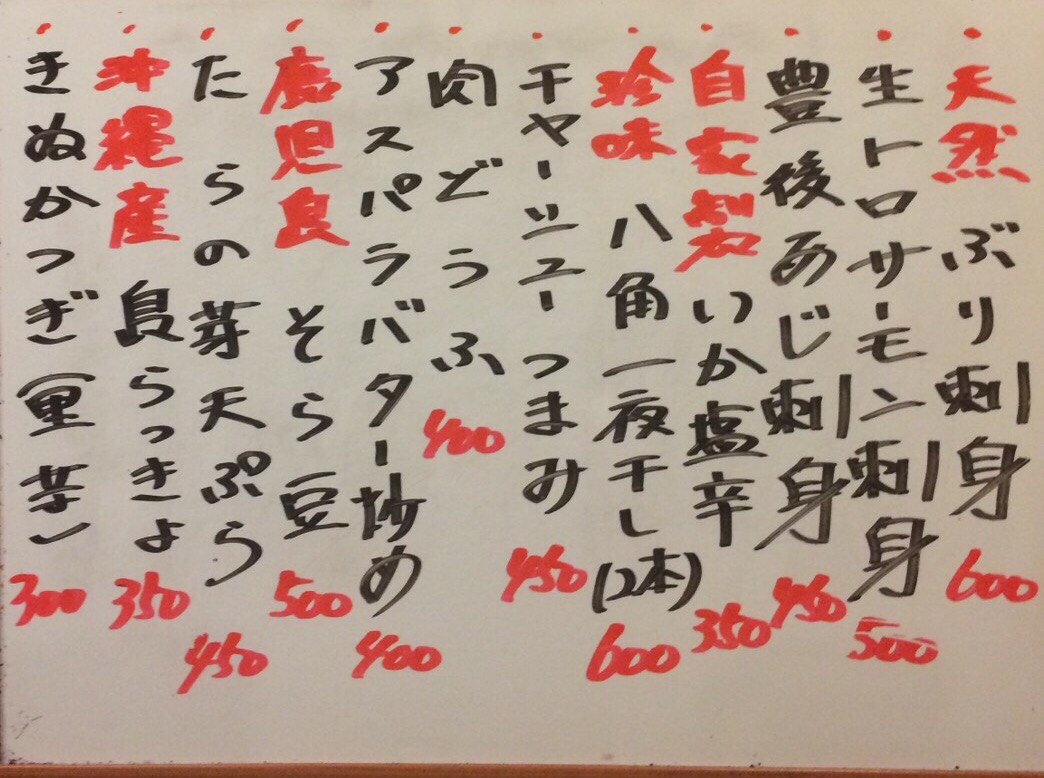 天然 ぶり刺身 600
生トロサーモン刺身 500
豊後あじ刺身 450
自家製 いか塩辛 350
珍味 八角一夜干し(2本) 600
チャーシューつまみ 450
肉どうふ 400
アスパラバター炒め 400
鹿児島 そら豆 500
たらの芽天ぷら 450
沖縄産 島らっきょ 350
きぬかつぎ(里芋) 300